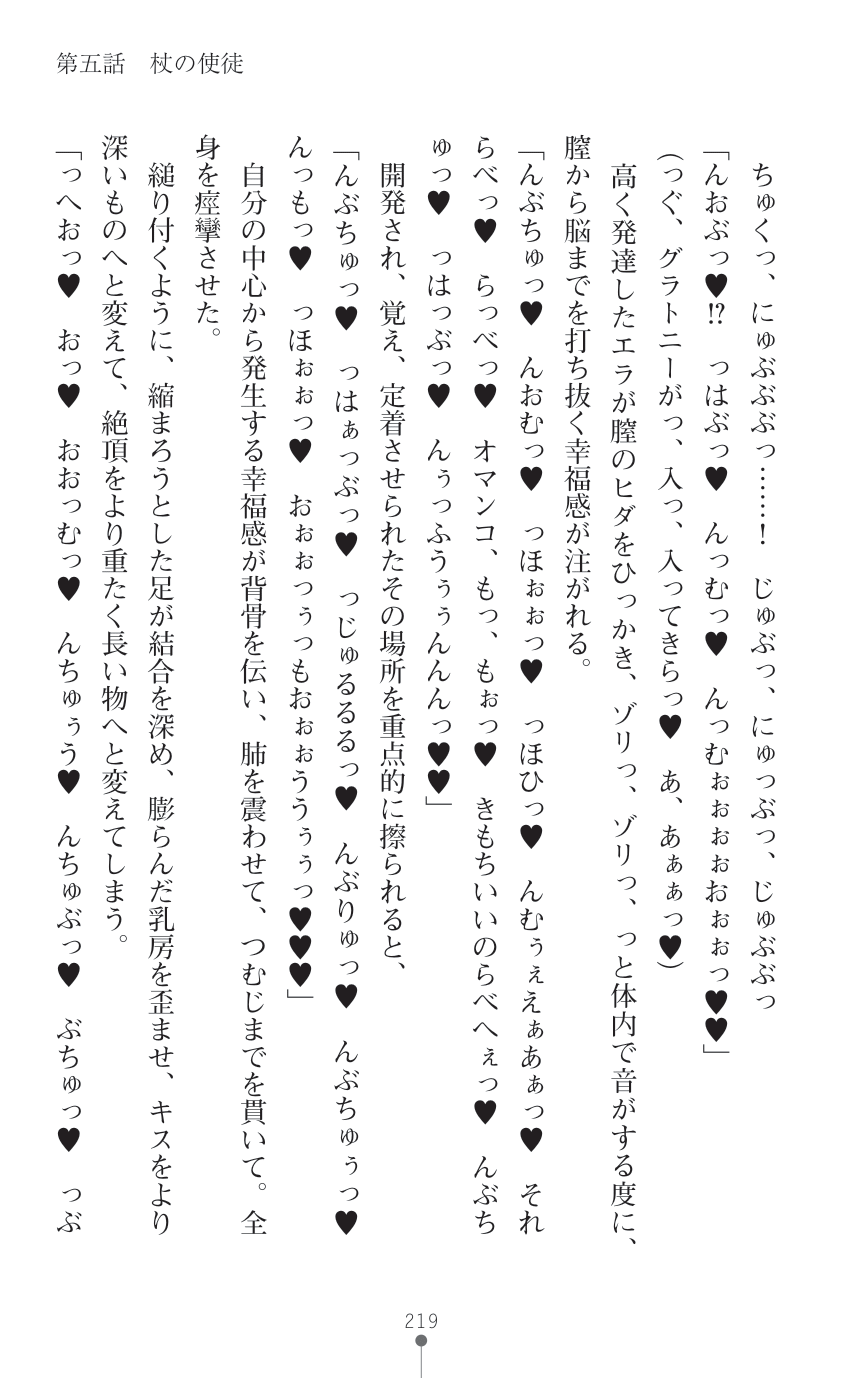 第五話　杖の使徒
　ちゅくっ、にゅぶぶぶっ……！　じゅぶっ、にゅっぶっ、じゅぶぶっ
「んおぶっ♥!?　っはぶっ♥　んっむっ♥　んっむぉぉぉぉおぉぉっ♥♥」
（っぐ、グラトニーがっ、入っ、入ってきらっ♥　あ、あぁぁっ♥）
　高く発達したエラが膣のヒダをひっかき、ゾリっ、ゾリっ、っと体内で音がする度に、
膣から脳までを打ち抜く幸福感が注がれる。
「んぶちゅっ♥　んおむっ♥　っほぉぉっ♥　っほひっ♥　んむぅぇえぁあぁっ♥　それ
らべっ♥　らっべっ♥　オマンコ、もっ、もぉっ♥　きもちいいのらべへぇっ♥　んぶち
ゅっ♥　っはっぶっ♥　んぅっふうぅぅんんんっ♥♥」
　開発され、覚え、定着させられたその場所を重点的に擦られると、
「んぶちゅっ♥　っはぁっぶっ♥　っじゅるるるっ♥　んぶりゅっ♥　んぶちゅぅっ♥
んっもっ♥　っほぉぉっ♥　おぉぉっぅっもおぉぉううぅぅっ♥♥♥」
　自分の中心から発生する幸福感が背骨を伝い、肺を震わせて、つむじまでを貫いて。全
身を痙攣させた。
　縋り付くように、縮まろうとした足が結合を深め、膨らんだ乳房を歪ませ、キスをより
深いものへと変えて、絶頂をより重たく長い物へと変えてしまう。
「っへおっ♥　おっ♥　おおっむっ♥　んちゅぅう♥　んちゅぶっ♥　ぶちゅっ♥　っぶ
219